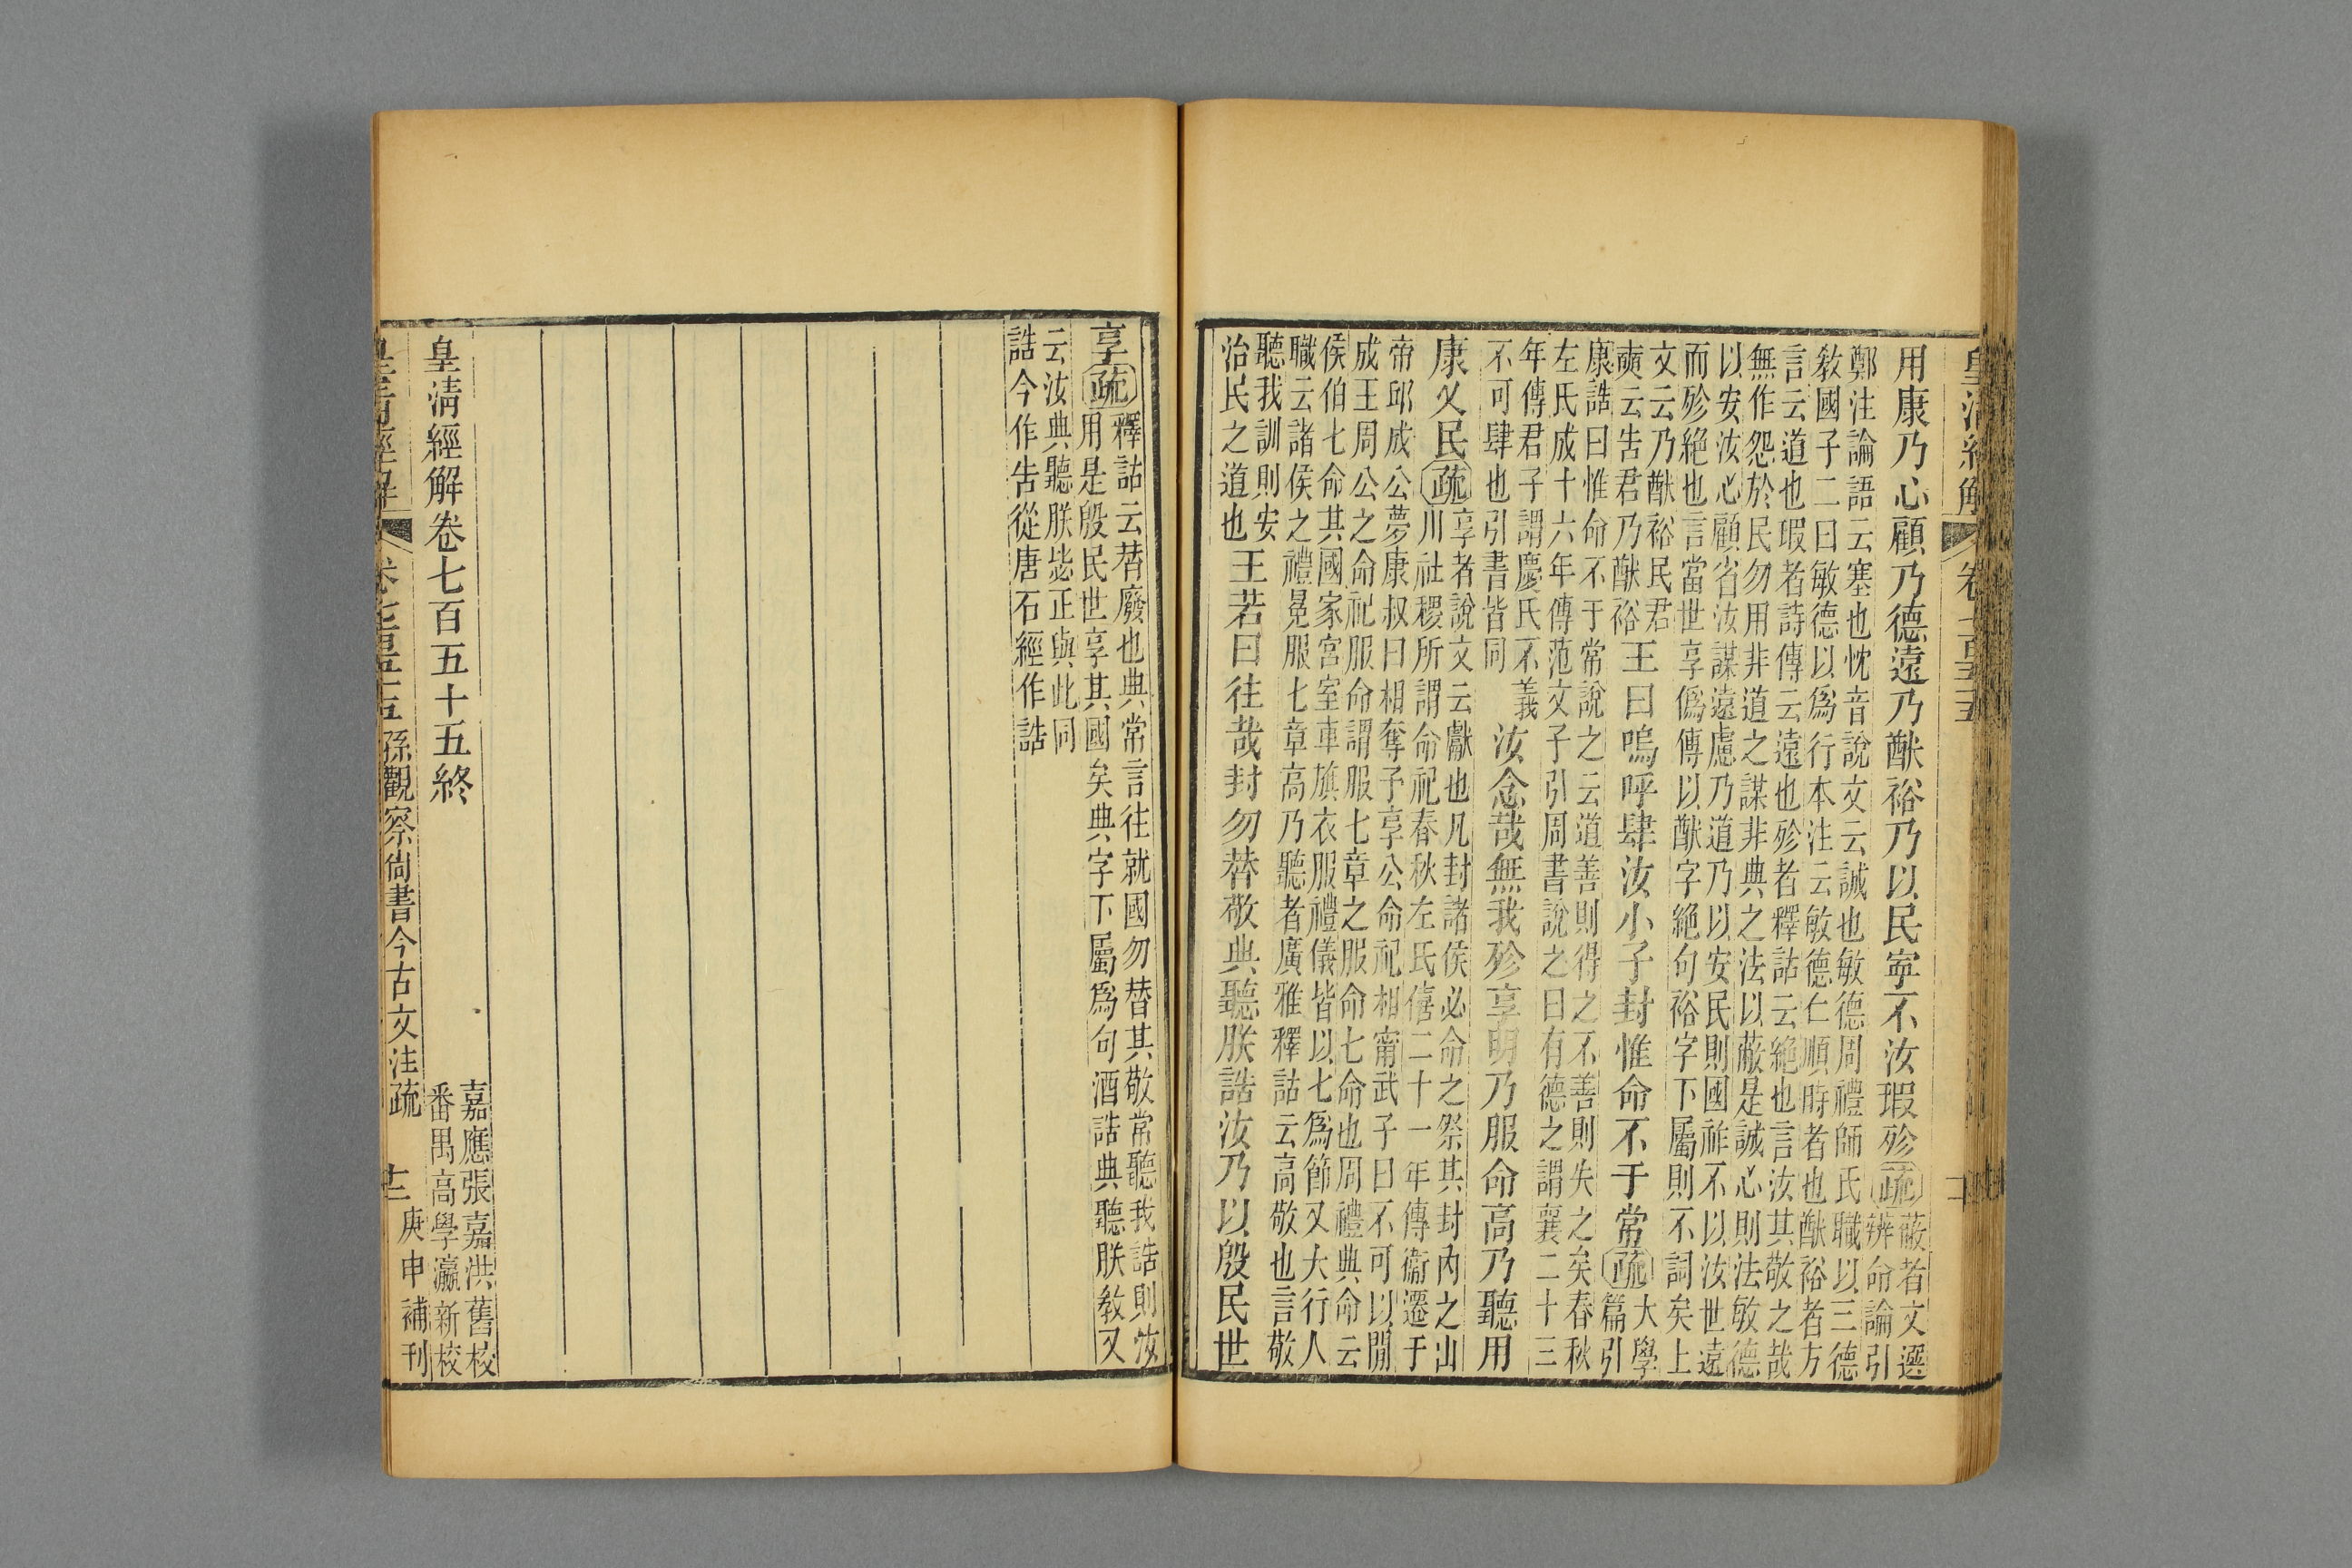 用康乃心顧乃德遠乃猷裕乃以民寧不汝瑕殄疏蔽者文選
辨命論引
鄭注論語云塞也忱音說文云誠也敏德周禮師氏職以三德
教國子二曰敏德以爲行本注云敏德仁順時者也猷裕者方
言云道也瑕者詩傳云遠也殄者釋詁云絕也言汝其敬之哉
無作怨於民勿用非道之謀非典之法以蔽是誠心則法敏德
以安汝心顧省汝謀遠慮乃道乃以安民則國祚不以汝世遠
而殄絕也言當世享僞傳以猷字絕句裕字下屬則不詞矣上
文云乃猷裕民君
奭云告君乃猷裕
王曰嗚呼肆汝小子封惟命不于常疏大學
篇引
康誥曰惟命不于常說之云道善則得之不善則失之矣春秋
左氏成十六年傳范文子引周書說之曰有德之謂襄二十三
年傳君子謂慶氏不義
不可肆也引書皆同
汝念哉無我殄享明乃服命高乃聽用
康乂民疏享者說文云獻也凡封諸侯必命之祭其封內之山
川社稷所謂命祀春秋左氏僖二十一年傳衞遷于
帝邱成公夢康叔曰相奪予享公命祀相甯武子曰不可以閒
成王周公之命祀服命謂服七章之服命七命也周禮典命云
侯伯七命其國家宮室車旗衣服禮儀皆以七爲節又大行人
職云諸侯之禮冕服七章高乃聽者廣雅釋詁云高敬也言敬
聽我訓則安
治民之道也
王若曰往哉封勿替敬典聽朕誥汝乃以殷民世
享疏釋詁云替廢也典常言往就國勿替其敬常聽我誥則汝
用是殷民世享其國矣典字下屬爲句酒誥典聽朕教又
云汝典聽朕毖正與此同
誥今作告從唐石經作誥
皇清經解卷七百五十五終
嘉應張嘉洪舊校
番禺高學瀛新校
孫觀察尙書今古文注疏
庚申補刊